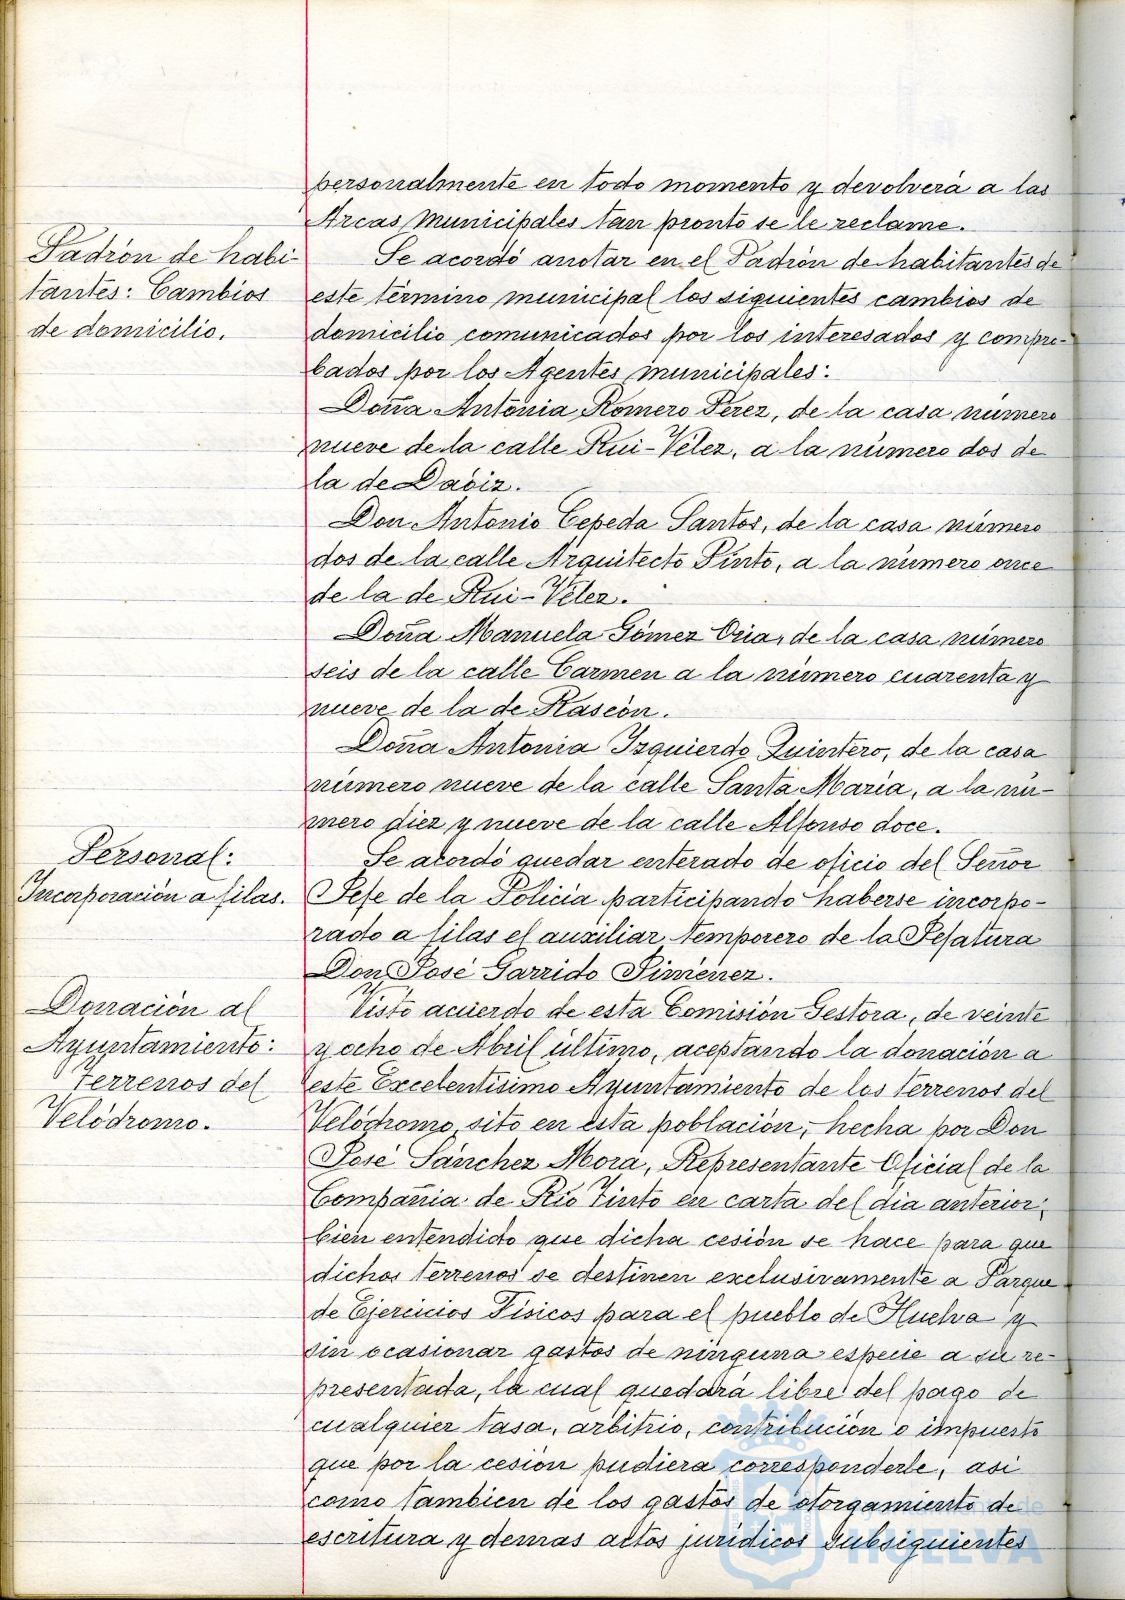 personalmente en todo momento y devolverá a las
Arcas Municipales tan pronto se le reclame.
Padrón de habi-
tantes: Cambios
de domicilio.
Se acordó anotar en el Padrón de habitantes de
este término municipal los siguientes cambios de
domicilio comunicados por los interesados y compro-
bados por los Agentes municipales:
Doña Antonia Romero Pérez, de la casa número
nueve de la calle Rui-Vélez, a la número dos de
la de Daoiz.
Don Antonio Cepeda Santos, de la casa número
dos de la calle Arquitecto Pinto, a la número once
de la de Rui-Vélez.
Doña Manuela Gómez Oria, de la casa número
seis de la calle Carmen a la número cuarenta y
nueve de la de Rascón.
Doña Antonia Izquierdo Quintero, de la casa
número nueve de la calle Santa María, a la nú-
mero diez y nueve de la calle Alfonso doce.
Personal:
Incorporación a filas.
Se acordó quedar enterado de oficio del Señor
Jefe de la Policía participando haberse incorpo-
rado a filas el auxiliar temporero de la Jefatura
Don José Garrido Jiménez.
Donación al
Ayuntamiento:
terrenos del
Velódromo.
Visto acuerdo de esta Comisión Gestora, de veinte
y ocho de Abril último, aceptando la donación a
este Excelentísimo Ayuntamiento de los terrenos del
Velódromo, sito en esta población, hecha por Don
José Sánchez Mora, Representante Oficial de la
Compañía de Río Tinto en carta del día anterior;
bien entendido que dicha cesión se hace para que
dichos terrenos se destinen exclusivamente a Parque
de Ejercicios Físicos para el pueblo de Huelva y
sin ocasionar gastos de ninguna especie a su re-
presentada, la cual quedará libre del pago de
cualquier tasa, arbitrio, contribución o impuesto
que por la cesión pudiera corresponderle, así
como tambien de los gastos de otorgamiento de
escritura y demás actos jurídicos subsiguientes
Ayuntamiento de
HUELVA